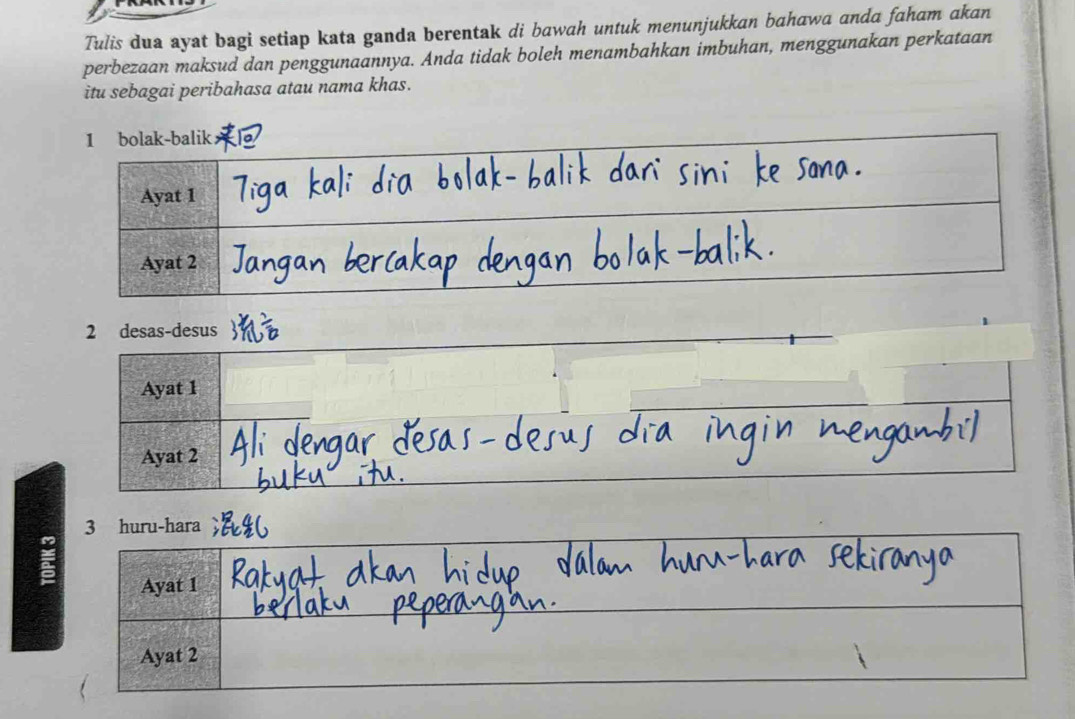 Tulis dua ayat bagi setiap kata ganda berentak di bawah untuk menunjukkan bahawa anda faham akan
perbezaan maksud dan penggunaannya. Anda tidak boleh menambahkan imbuhan, menggunakan perkataan
itu sebagai peribahasa atau nama khas.
1 bolak-balik 来回
Ayat 1 Tiga kali dia bolak-balik dari sini ke sana.
Ayat 2 Jangan bercakap dengan bolak-balik.
2 desas-desus 流言
Ayat 1
Ayat 2 Ali dengar desas-desus dia ingin mengambil
buku itu.
3 huru-hara 混乱
Ayat 1 Rakyat akan hidup dalam huru-hara sekiranya
berlaku peperangan.
Ayat 2
TOPIK 3